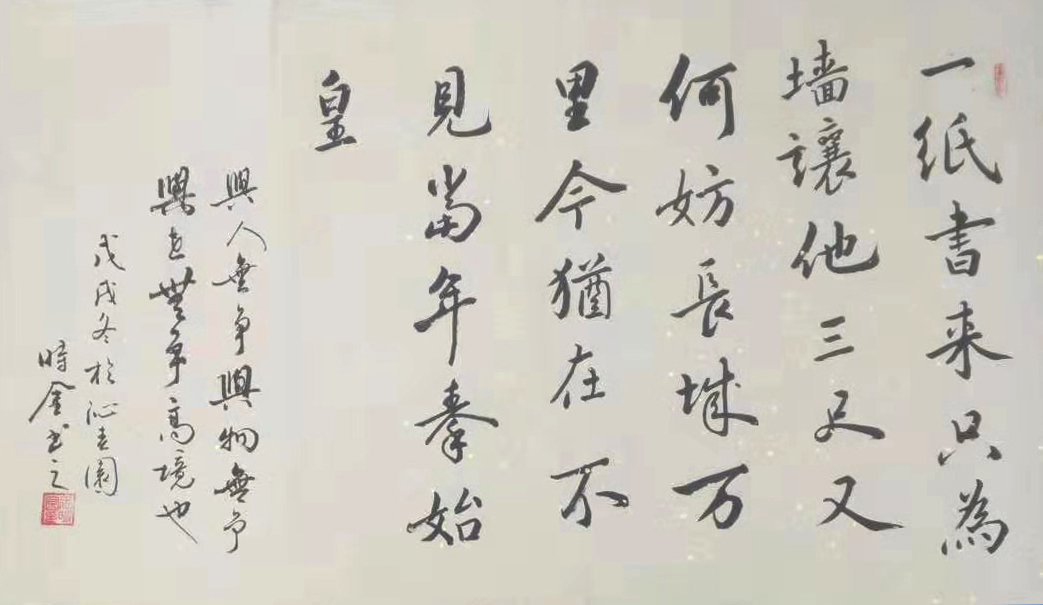 一紙書来只為
墙讓他三尺又
何妨長城万
里今猶在不
見當年秦始
皇
與人無争與物無争
與世無争高境也
戊戌冬於沁春園
時金书之